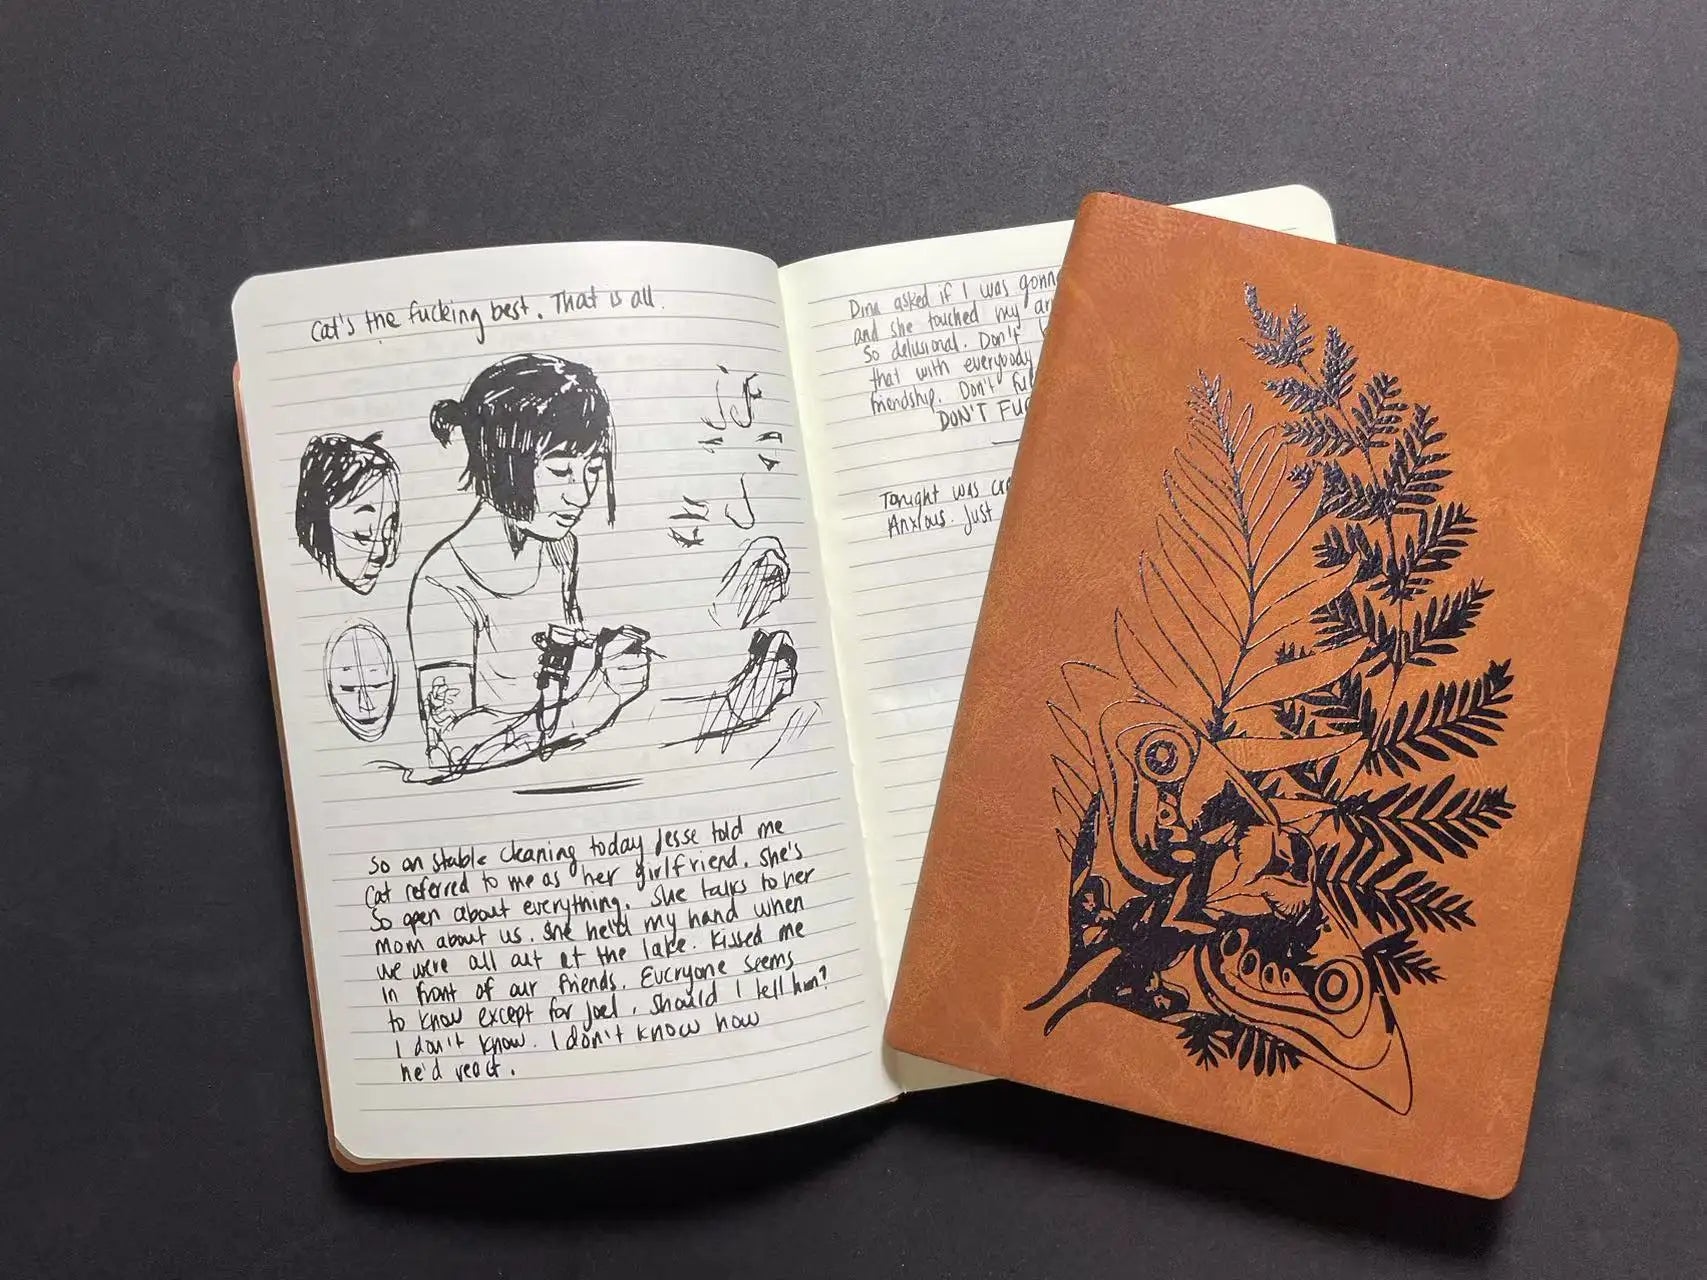 Cat's the fucking best. That is all.
So on stable cleaning today Jesse told me
Cat referred to me as her girlfriend. She's
So open about everything. She talks to her
Mom about us. She held my hand when
we were all out at the lake. Kissed me
In front of our friends. Everyone seems
to know except for Joel. Should I tell him?
I don't know. I don't know how
he'd react.
Dina asked if I was gonn
and she touched my ar
So delusional. Don't
that with everybody
friendship. Don't fu
DON'T FUC
Tonight was cr
Anxious. Just